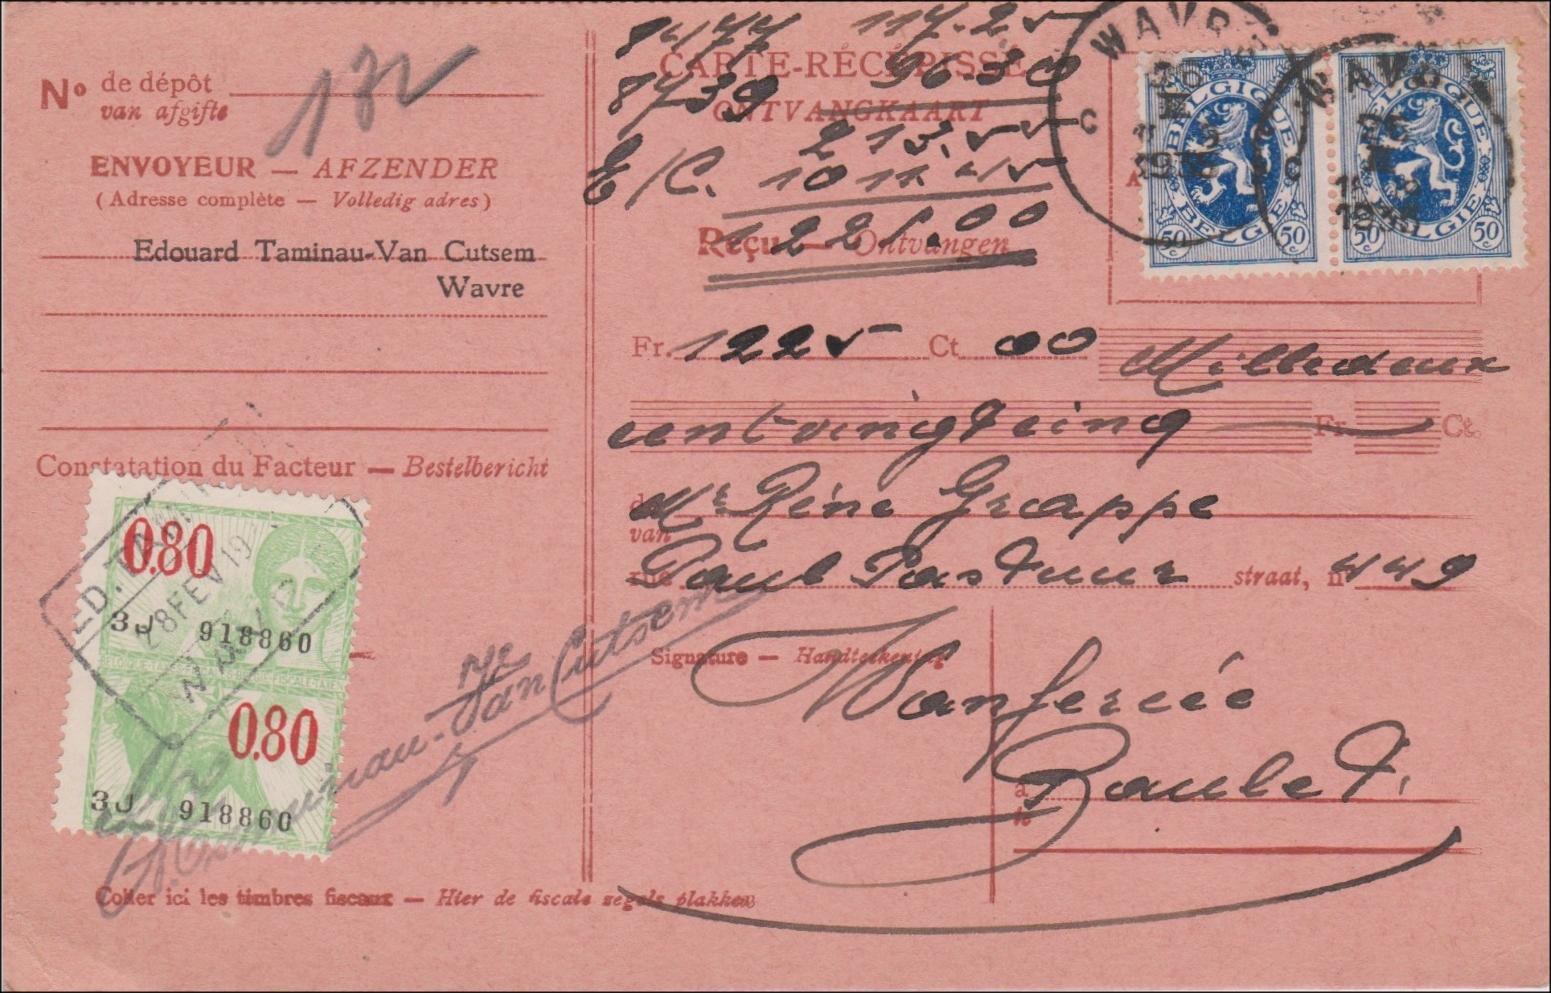 Nº de dépôt
van afgifte
182
ENVOYEUR — AFZENDER
(Adresse complète — Volledig adres)
Edouard Taminau-Van Cutsem
Wavre
Constatation du Facteur — Bestelbericht
0.80
3J 918860
0.80
3J 918860
ED. TAMIN
28 FEV 19
Taminau-Van Cutsem
Coller ici les timbres fiscaux — Hier de fiscale zegels plakken
117.25
8739 96.30
CARTE-RÉCÉPISSÉ
ONTVANGKAART
213.55
E/C. 1011.45
Reçu — Ontvangen
1221.00
WAVRE
C C
1935
WAVRE
26
1935
BELGIQUE
BELGIË
50c 50c
BELGIQUE
BELGIË
50c 50c
Fr. 1225 Ct 00 Mille deux
cent vingt cinq Fr. Ct.
de Mr Réné Grappe
van
rue Paul Pastuur straat, nr 449
Signature — Handteekening
Wanfercée
à Baulet.
te